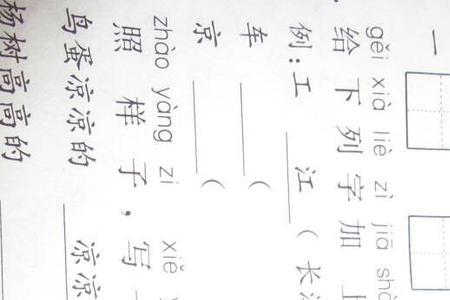 gěi xià liè zì jiā
给下列字加
例:工 江 (长
车 (
京 (
zhào yàng zi xiě
照样子,写
鸟蛋凉凉的 凉凉
杨树高高的